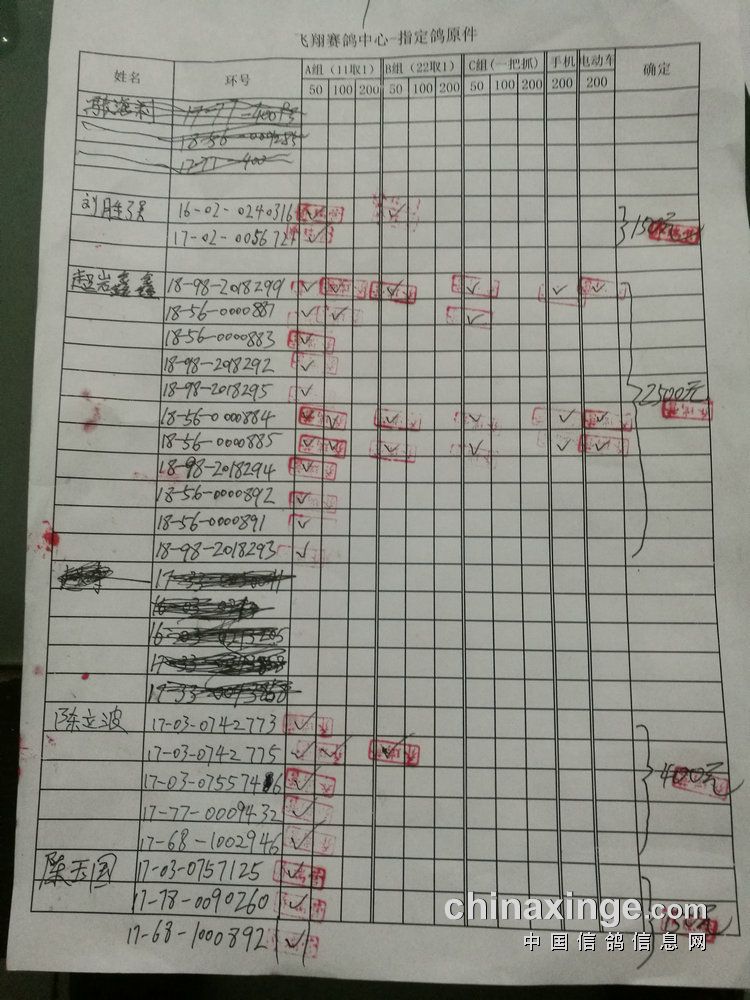 飞翔赛鸽中心-指定鸽原件
姓名 环号 A组（11取1） B组（22取1） C组（一把抓） 手机 电动车 确定
50 100 200 50 100 200 50 100 200 200 200
16-02-0240316 ✓ ✓
17-02-0056727 ✓
18-98-2018299 ✓ ✓ ✓ ✓ ✓ ✓
18-56-0000887 ✓ ✓ ✓
18-56-0000883 ✓
18-98-2018292 ✓
18-98-2018295 ✓
2500元
18-56-0000884 ✓ ✓ ✓ ✓ ✓ ✓
18-56-0000885 ✓ ✓ ✓ ✓ ✓ ✓
18-98-2018294 ✓
18-56-0000892 ✓
18-56-0000891 ✓
18-98-2018293 ✓
陈立波 17-03-0742773 ✓
17-03-0742775 ✓ ✓ ✓
17-03-0755746 ✓
400元
17-77-0009432 ✓
17-68-1002946 ✓
陈玉国 17-03-0757125 ✓
17-78-0090260 ✓
17-68-1000892 ✓
chinaxinge.com
中国信鸽信息网